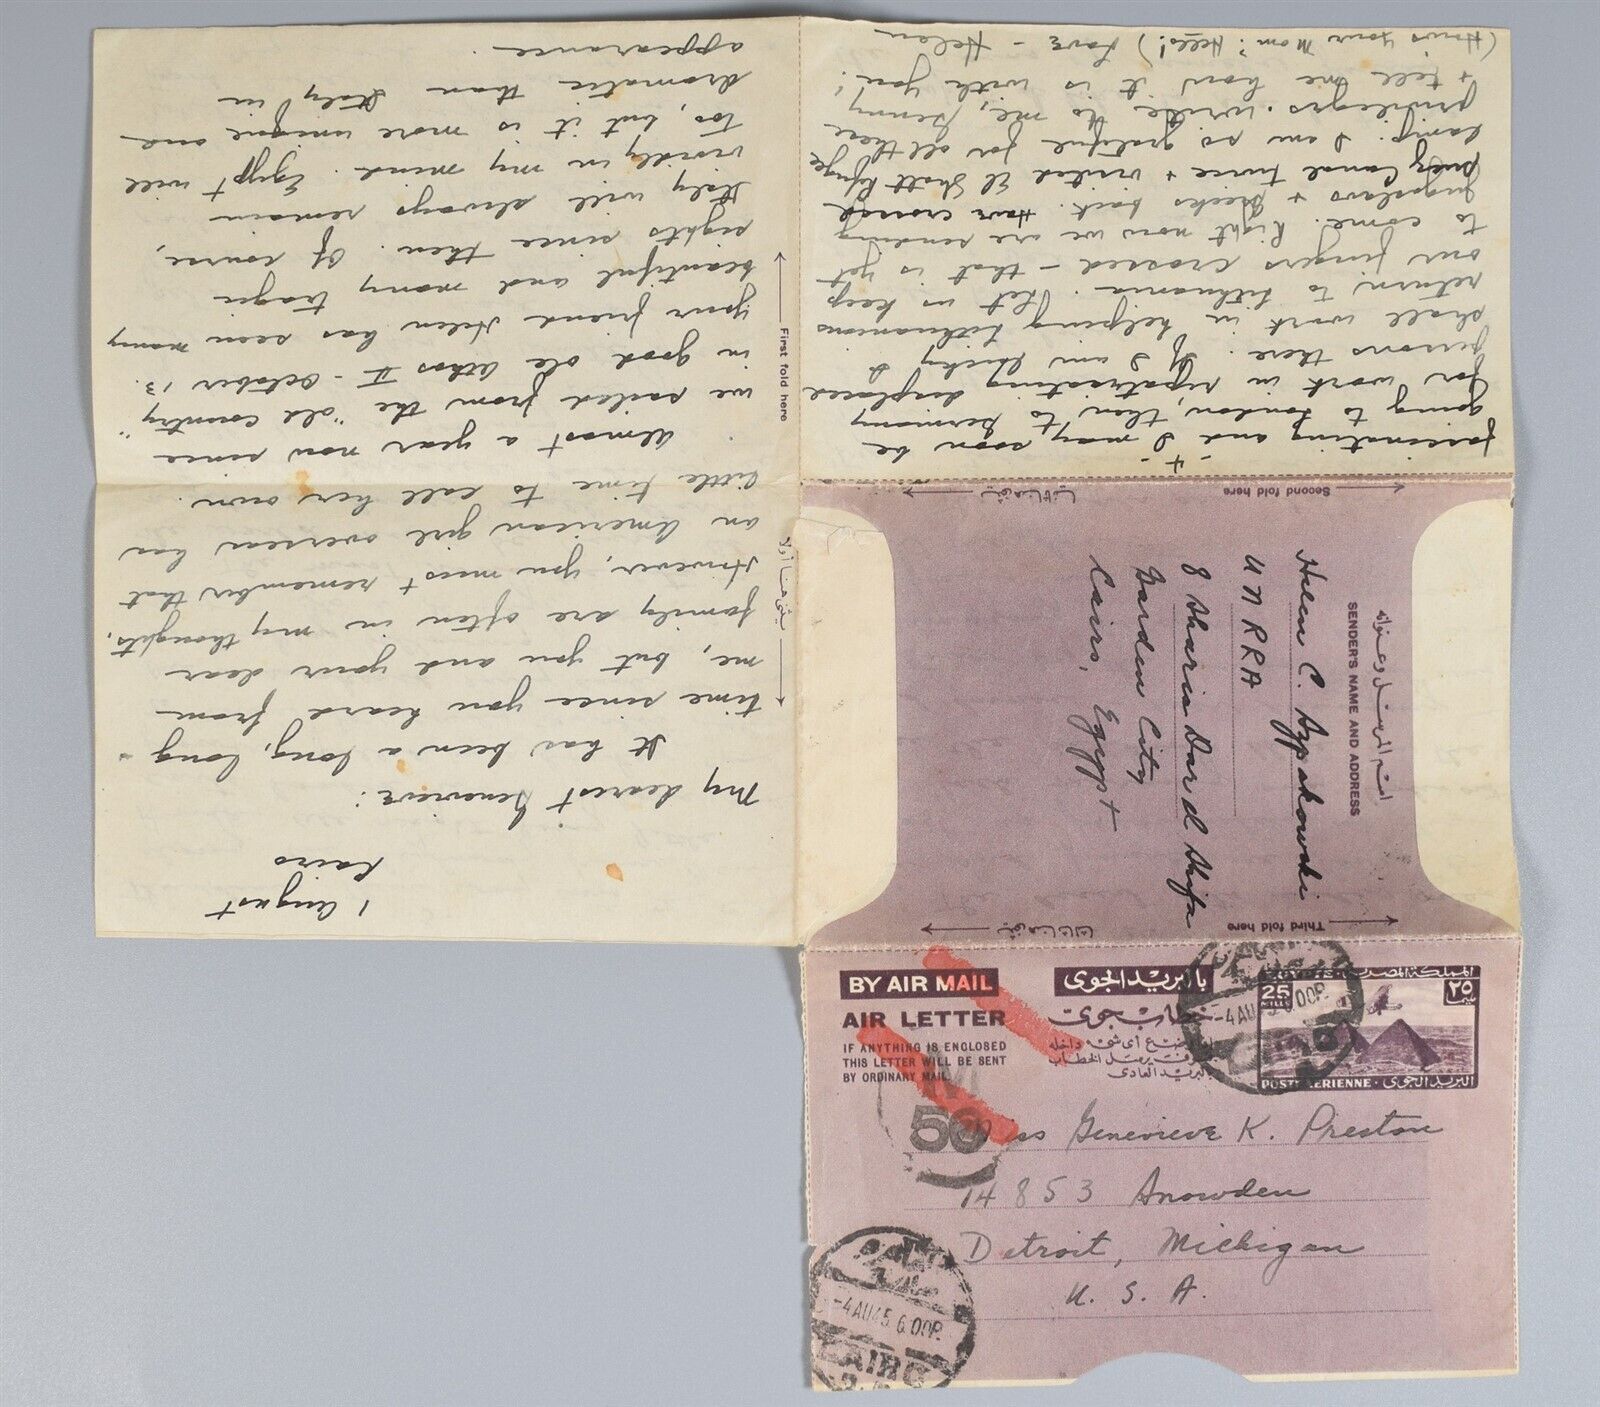 1 August
Cairo
My dearest Genevieve:
It has been a long, long
time since you heard from
me, but you and your dear
family are often in my thoughts.
However, you must remember that
an American girl overseas has
little time to call her own.
Almost a year now since
we sailed from the "old country"
in good ole Athos II - October 13.
Your friend Helen has seen many
beautiful and many tragic
sights since then. Of course,
Italy will always remain
vividly in my mind. Egypt will
too, but it is more unique and
dramatic than Italy in
appearance.
First fold here
يثنى هنا أولا
fascinating and I may soon be
going to London, then to Germany
for work in repatriating displaced
persons there. If I am lucky I
shall work in helping Lithuanians
return to Lithuania. Let us keep
our fingers crossed - that is yet
to come. Right now we are sending
Jugoslavs + Greeks back. Have crossed
Suez Canal twice + visited El Shatt Refuge
Camp. I am so grateful for all these
privileges. Write to me, Genny
+ tell me how it is with you!
(How's your Mom? Hello!) Love - Helen
Second fold here
اسم المرسل وعنوانه
SENDER'S NAME AND ADDRESS
Helen C. Azpakowski
UNRRA
8 Sharia Dar el Shifa
Garden City
Cairo, Egypt
Third fold here
BY AIR MAIL
بالبريد الجوى
AIR LETTER
خطاب جوى
IF ANYTHING IS ENCLOSED
THIS LETTER WILL BE SENT
BY ORDINARY MAIL.
إذا وضع أى شىء داخله
سوف يرسل الخطاب
بالبريد العادى
المملكة المصرية
25
MILLS
٢٥
POSTE AERIENNE · البريد الجوى
-4AU45 6 00P.
50
Miss Genevieve K. Preston
14853 Snowden
Detroit, Michigan
U. S. A.
-4AU45 6 00P.
CAIRO